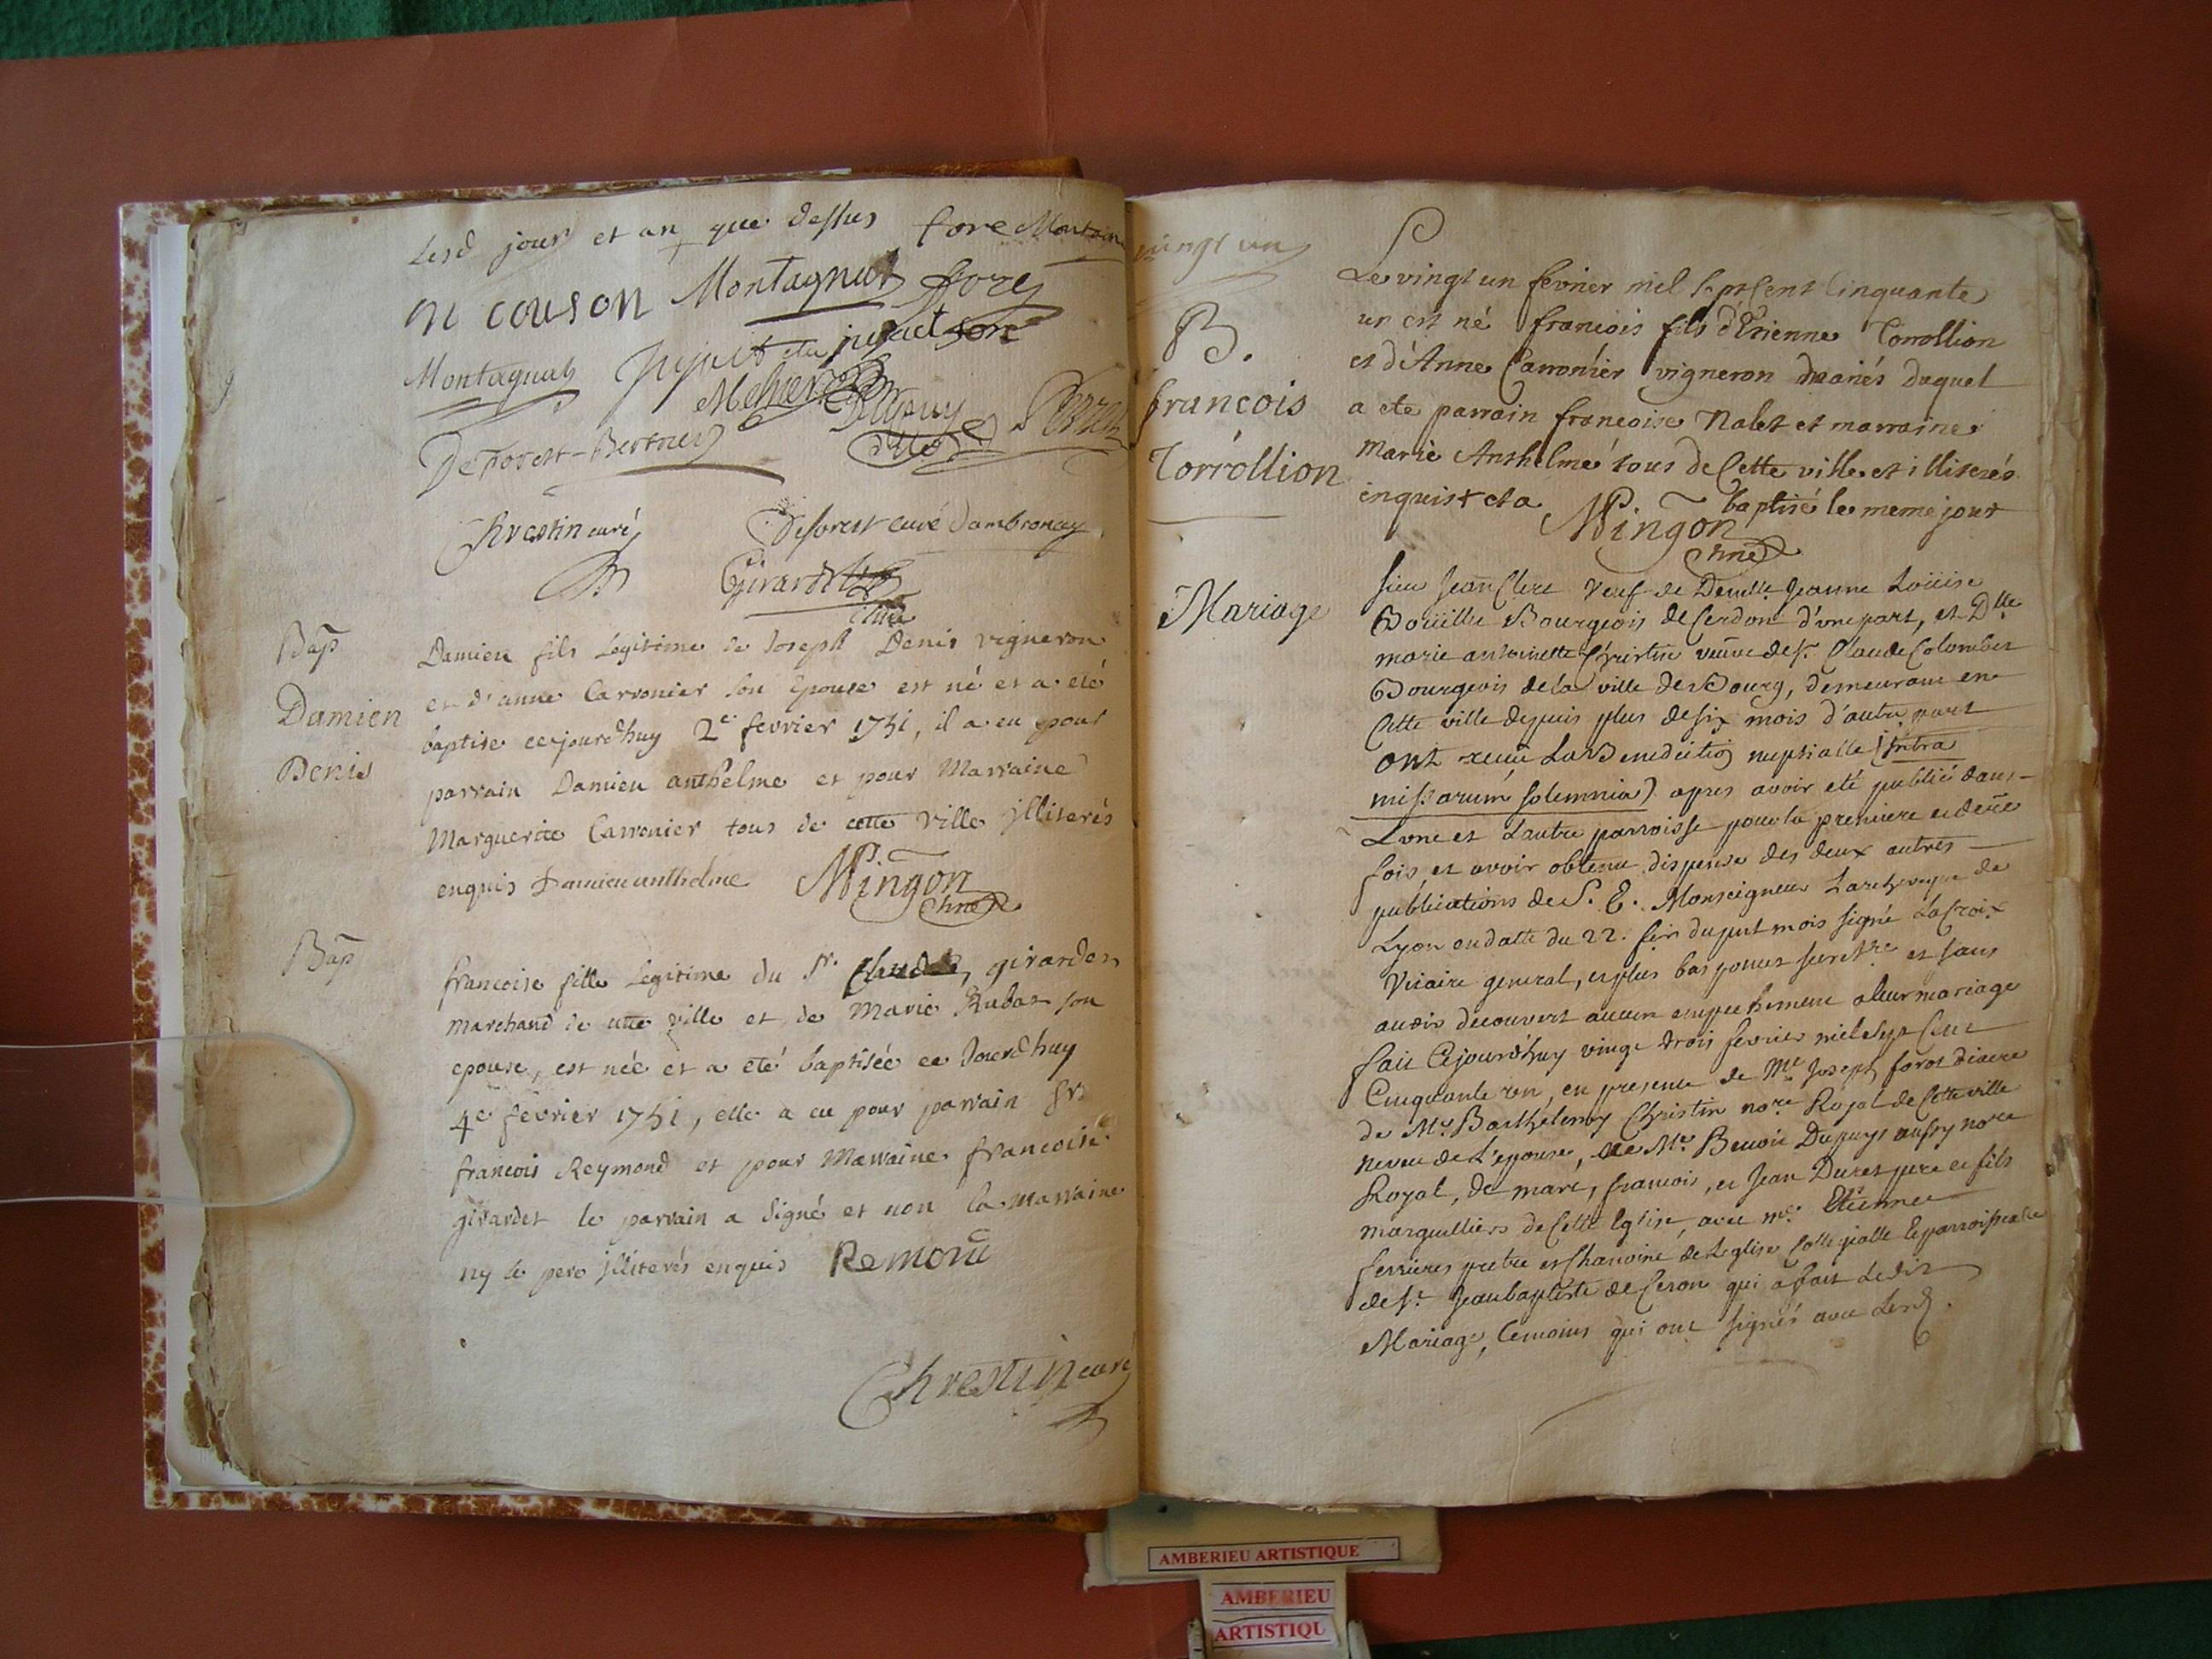 Lesd jour et an que dessus fore Montain
m couson Montagnat ffore
Montagnat
Deforest-Bertrier
Chrestin curé Deforest curé dambronay
Girardet
Bap
Damien
Denis
Damien fils legitime de Joseph Denis vigneron
et d'anne Carronier son Epouse est né et a été
baptise cejourdhuy 2e fevrier 1751, il a eu pour
parrain Damien anthelme et pour Marraine
Marguerite Carronier tous de cette ville jlliterés
enquis Damien anthelme Mingon
Bap
francoise fille legitime du Sr. Claude, girardet
marchand de cette ville et de Marie Rubat son
epouse, est née et a eté baptisée ce Jourdhuy
4e fevrier 1751, elle a eu pour parrain Sr
francois Reymond et pour Marraine francoise
girardet le parrain a signé et non la marraine
ny le pere jlliterés enquis Remond
Chrestin curé
vingt un
B.
francois
Torrollion
Le vingt un fevrier mil sept cent cinquante
un est né francois fils d'Etienne Torrollion
et d'Anne Carronier vigneron mariés duquel
a ete parrain francoise Nalet et marraine
Marie Anthelme tous de Cette ville et illiterés
enquis et a baptisé le meme jour
Mingon
Mariage
sieur Jean Clerc veuf de Demlle Jeanne Loüise
Boüillie Bourgeois de Cerdon d'une part, et Dlle
marie antoinette Christin veuve de Sr. Claude Colombet
Bourgeois de la ville de Bourg, demeurant en
Cette ville depuis plus de six mois d'autre part
ont receu La Benediction nuptialle (intra
missarum solemnia) apres avoir eté publié dans
Lune et Lautre parroisse pour la premiere et dere
fois, et avoir obtenu dispense des deux autres
publications de S. E. Monseigneur Larcheveque de
Lyon en datte du 22. fevr du pnt mois signé Lacroix
Vicaire general, et plus bas secretre et sans
avoir decouvert aucun empechement a leur mariage
fait Cejourd'huy vingt trois fevrier mil sept Cent
Cinquante un, en presence de Me Joseph forot diacre
de Me Barthelemy Christin nore Royal de Cette ville
neveu de L'epouse, de Me. Benoit Dupuys aussy nore
Royal, de marc, francois, et Jean Duret pere et fils
marguilliers de Cette Eglise, avec me. Etienne
ferrieres pretre et Chanoine de Leglise Collegialle et parroissialle
de St. Jean baptiste de Ceron qui a fait Ledit
Mariage, temoins qui ont signés avec Lesd.
AMBERIEU ARTISTIQUE
AMBERIEU
ARTISTIQU